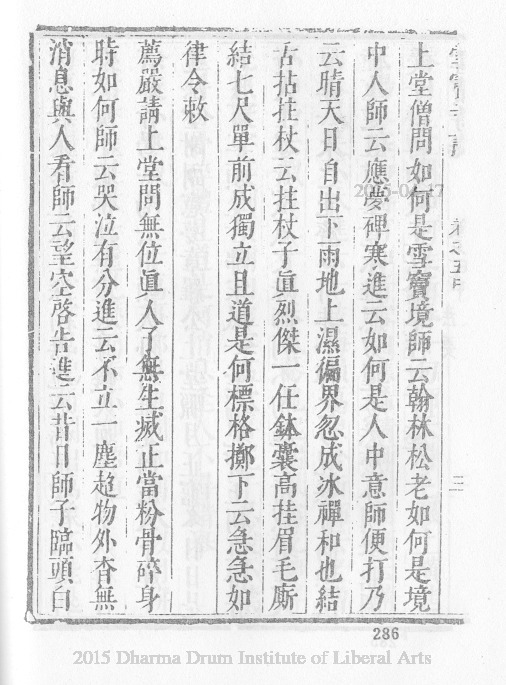 上堂僧問如何是雪竇境師云翰林松老如何是境
中人師云應夢碑寒進云如何是人中意師便打乃
云晴天日自出下雨地上濕徧界忽成冰禪和也結
古拈拄杖云拄杖子眞烈傑一任鉢囊高挂眉毛廝
結七尺單前成獨立且道是何標格擲下云急急如
律令敕
薦嚴請上堂問無位眞人了無生滅止當粉骨碎身
時如何師云哭泣有分進云不立一塵超物外杳無
消息與人看師云望空啓告進云昔日師子臨頭白
286
2015 Dharma Drum Institute of Liberal Arts